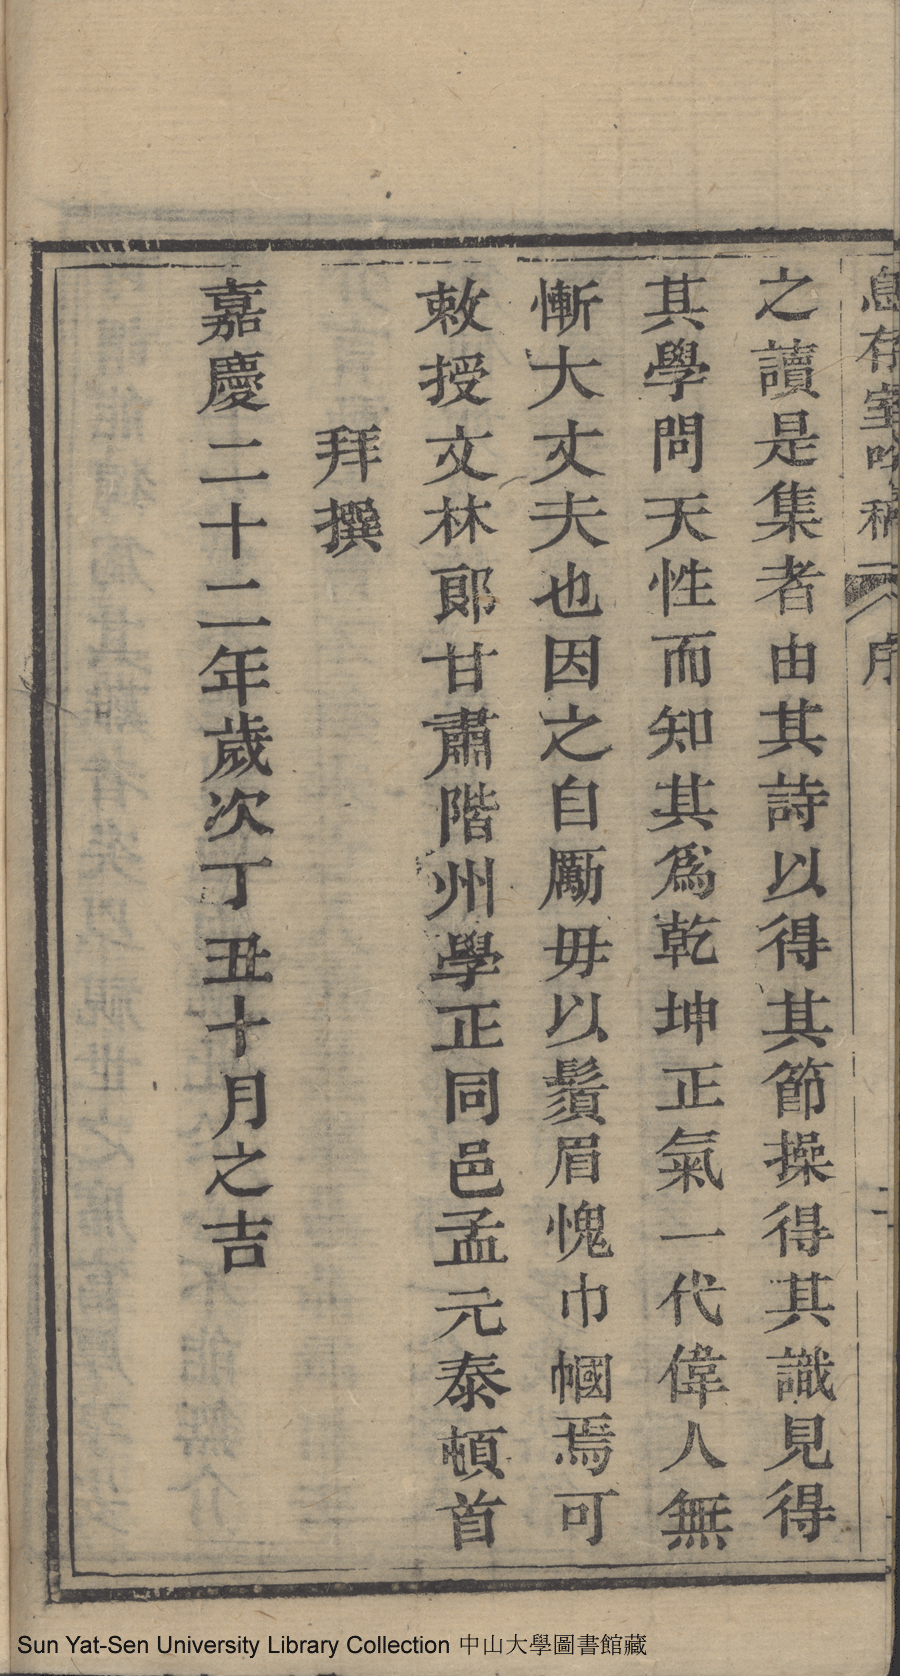 息存室吟稿 序 二
之讀是集者由其詩以得其節操得其識見得
其學問天性而知其爲乾坤正氣一代偉人無
慚大丈夫也因之自勵毋以鬚眉愧巾幗焉可
敕授文林郎甘肅階州學正同邑孟元泰頓首
拜撰
嘉慶二十二年歲次丁丑十月之吉
Sun Yat-Sen University Library Collection 中山大學圖書館藏